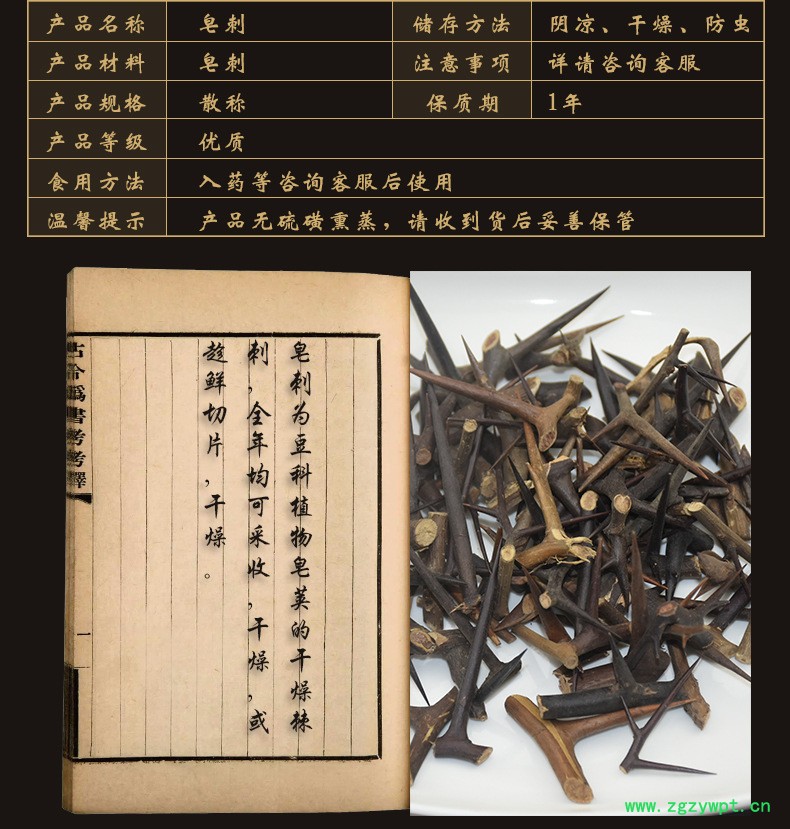 产品名称 皂刺 储存方法 阴凉、干燥、防虫
产品材料 皂刺 注意事项 详请咨询客服
产品规格 散称 保质期 1年
产品等级 优质
食用方法 入药等咨询客服后使用
温馨提示 产品无硫磺熏蒸，请收到货后妥善保管
皂刺为豆科植物皂荚的干燥棘
刺，全年均可采收，干燥，或
趁鲜切片，干燥。
古今偽書考考釋
一
www.zgzywpt.cn